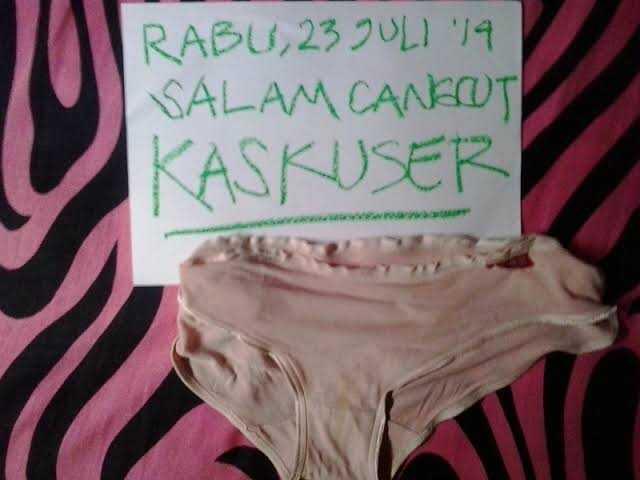 RABU, 23 JULI '14
SALAM CANGCUT
KASKUSER